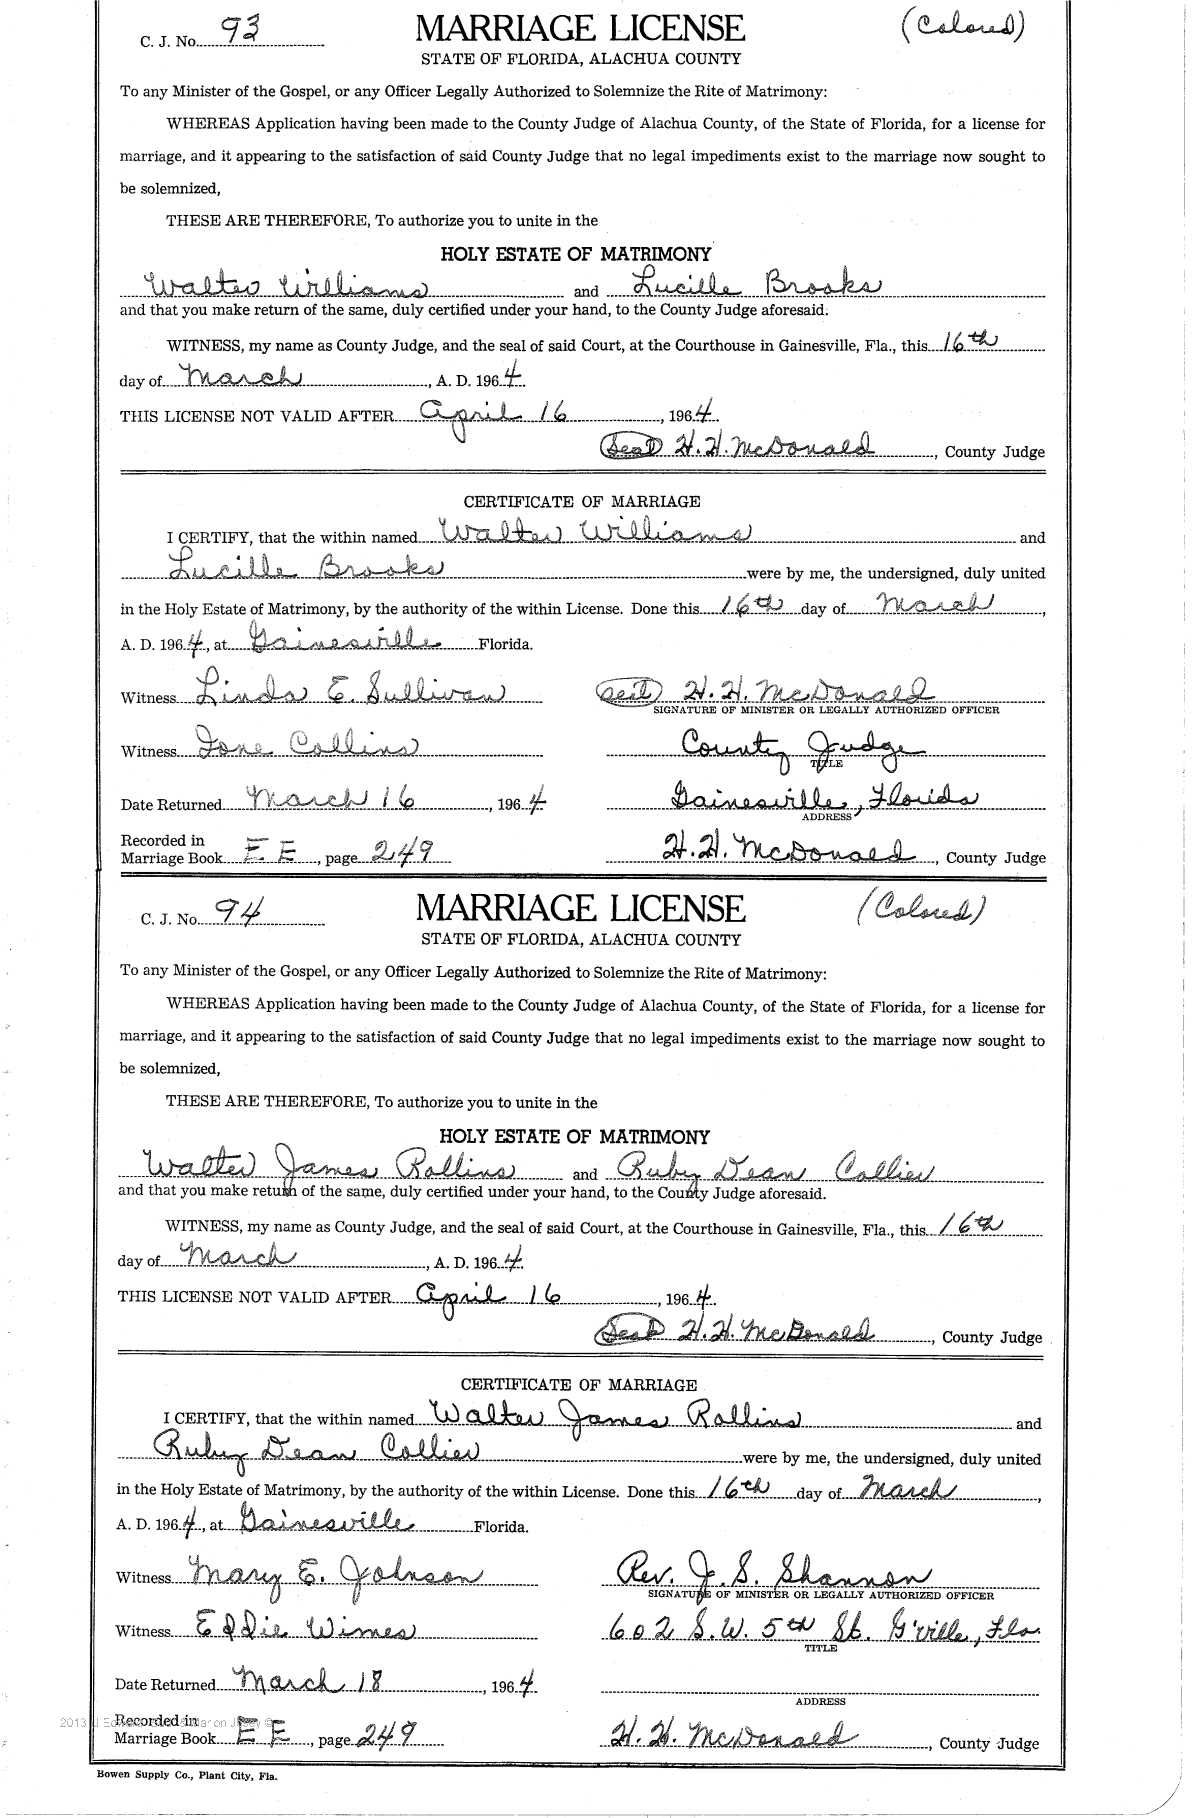 C. J. No. 93 MARRIAGE LICENSE (Colored)
STATE OF FLORIDA, ALACHUA COUNTY
To any Minister of the Gospel, or any Officer Legally Authorized to Solemnize the Rite of Matrimony:
WHEREAS Application having been made to the County Judge of Alachua County, of the State of Florida, for a license for
marriage, and it appearing to the satisfaction of said County Judge that no legal impediments exist to the marriage now sought to
be solemnized,
THESE ARE THEREFORE, To authorize you to unite in the
HOLY ESTATE OF MATRIMONY
Walter Williams and Lucille Brooks
and that you make return of the same, duly certified under your hand, to the County Judge aforesaid.
WITNESS, my name as County Judge, and the seal of said Court, at the Courthouse in Gainesville, Fla., this 16th
day of March, A. D. 1964.
THIS LICENSE NOT VALID AFTER April 16, 1964.
(Seal) H. H. McDonald, County Judge
CERTIFICATE OF MARRIAGE
I CERTIFY, that the within named Walter Williams and
Lucille Brooks were by me, the undersigned, duly united
in the Holy Estate of Matrimony, by the authority of the within License. Done this 16th day of March,
A. D. 1964, at Gainesville Florida.
Witness Linda E. Sullivan (Seal) H. H. McDonald
SIGNATURE OF MINISTER OR LEGALLY AUTHORIZED OFFICER
Witness Ione Collins County Judge
TITLE
Date Returned March 16, 1964 Gainesville, Florida
ADDRESS
Recorded in
Marriage Book EE, page 249 H. H. McDonald, County Judge
C. J. No. 94 MARRIAGE LICENSE (Colored)
STATE OF FLORIDA, ALACHUA COUNTY
To any Minister of the Gospel, or any Officer Legally Authorized to Solemnize the Rite of Matrimony:
WHEREAS Application having been made to the County Judge of Alachua County, of the State of Florida, for a license for
marriage, and it appearing to the satisfaction of said County Judge that no legal impediments exist to the marriage now sought to
be solemnized,
THESE ARE THEREFORE, To authorize you to unite in the
HOLY ESTATE OF MATRIMONY
Walter James Rollins and Ruby Dean Collier
and that you make return of the same, duly certified under your hand, to the County Judge aforesaid.
WITNESS, my name as County Judge, and the seal of said Court, at the Courthouse in Gainesville, Fla., this 16th
day of March, A. D. 1964.
THIS LICENSE NOT VALID AFTER April 16, 1964.
(Seal) H. H. McDonald, County Judge
CERTIFICATE OF MARRIAGE
I CERTIFY, that the within named Walter James Rollins and
Ruby Dean Collier were by me, the undersigned, duly united
in the Holy Estate of Matrimony, by the authority of the within License. Done this 16th day of March,
A. D. 1964, at Gainesville Florida.
Witness Mary E. Johnson Rev. J. S. Shannon
SIGNATURE OF MINISTER OR LEGALLY AUTHORIZED OFFICER
Witness Eddie Wimes 602 S.W. 5th St. G'ville, Fla.
TITLE
Date Returned March 18, 1964
ADDRESS
2013 J
Recorded in
Marriage Book EE, page 249 H. H. McDonald, County Judge
Bowen Supply Co., Plant City, Fla.